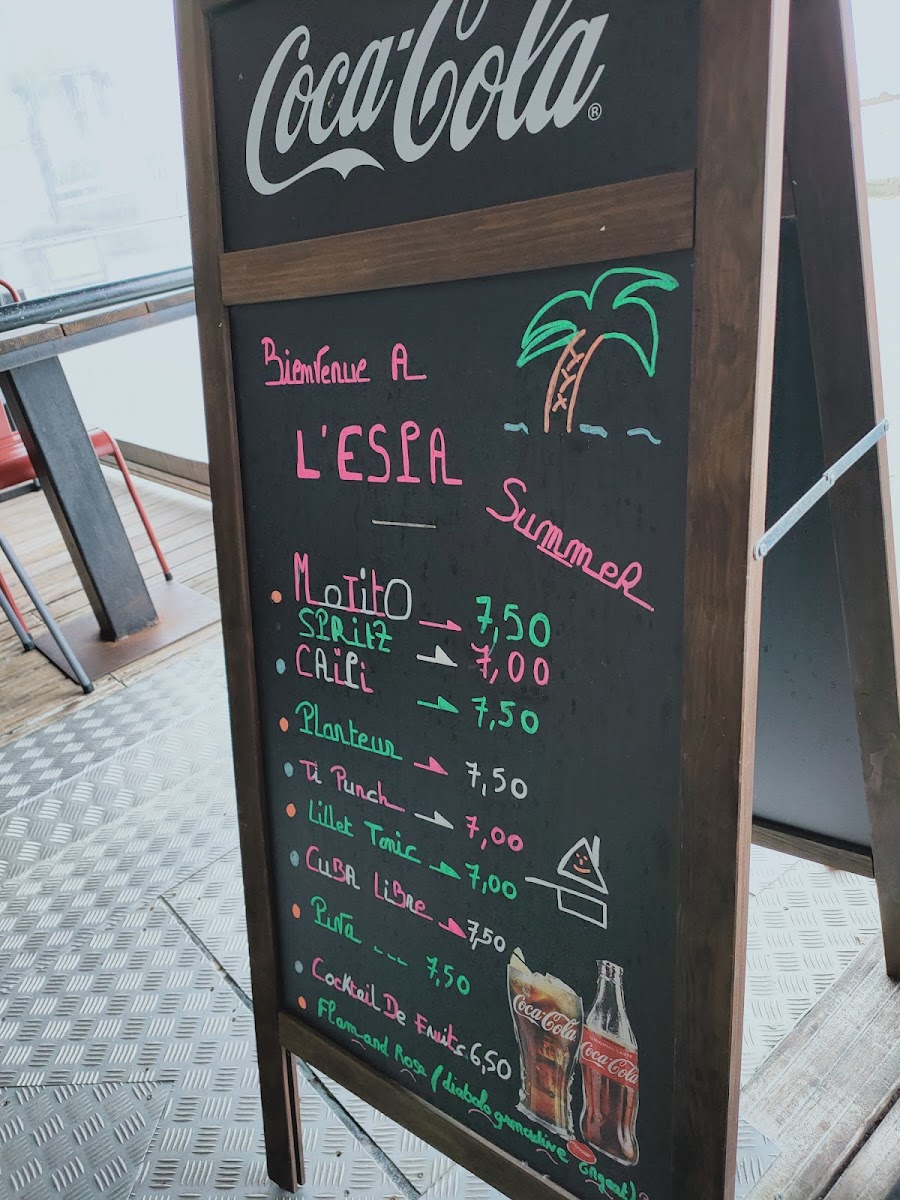 Coca-Cola ®
Bienvenue A
L'ESPA
Summer
Mojito → 7,50
Spritz → 7,00
Caïpi → 7,50
Planteur → 7,50
Ti Punch → 7,00
Lillet Tonic → 7,00
Cuba Libre → 7,50
Pina --- 7,50
Cocktail De Fruits 6,50
Flam-and Rose (diabolo grenadine orgeat)
Coca-Cola
Coca-Cola